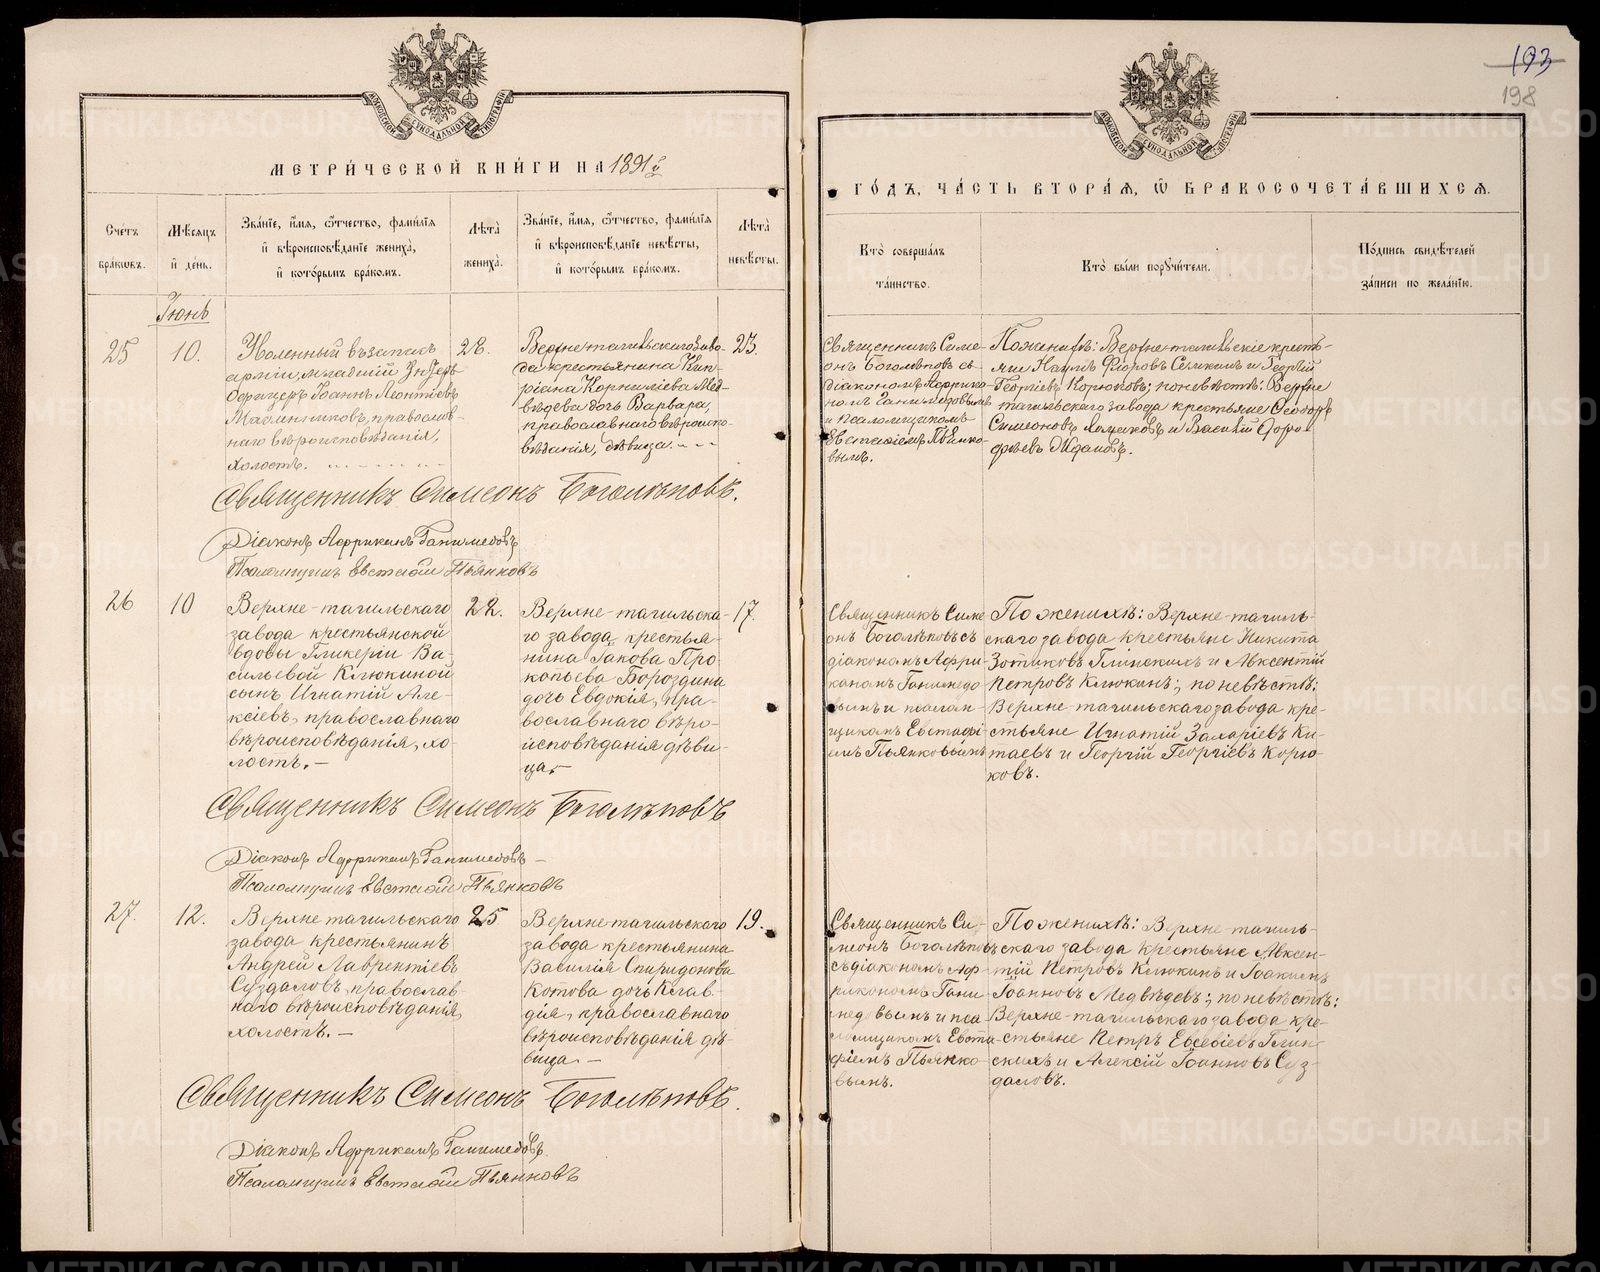 193
198
МОСКОВСКОЙ СѴНОДАЛЬНОЙ ТИПОГРАФІИ
МОСКОВСКОЙ СѴНОДАЛЬНОЙ ТИПОГРАФІИ
МЕТРИ́ЧЕСКОЙ КНИ́ГИ НА 1891й
ГО́ДЪ, ЧА́СТЬ ВТОРА́Я, Ѽ БРАКОСОЧЕТА́ВШИХСЯ.
Сче́тъ бра́кѡвъ.
Мѣ́сяцъ и҆ де́нь.
Зва́нїе, и҆́мя, ѻ҆́тчество, фами́лїя и҆ вѣроисповѣ́данїе жениха̀, и҆ кото́рымъ бра́комъ.
Лѣта̀ жениха̀.
Зва́нїе, и҆́мя, ѻ҆́тчество, фами́лїя и҆ вѣроисповѣ́данїе невѣ́сты, и҆ кото́рымъ бра́комъ.
Лѣта̀ невѣ́сты.
Кто̀ соверша́лъ та́инство.
Кто̀ бы́ли порꙋчи́тели.
По́дпись свидѣ́телей за́писи по жела́нїю.
Іюнь
25
10.
Уволенный въ запасъ
арміи, младшій Унтеръ
Офицеръ Іоаннъ Леонтіевъ
православ-
наго вѣроисповѣданія,
холостъ.
28.
Верхне-тагильскаго заво-
да крестьянина Кип-
ріана Корниліева Мед-
вѣдева дочь Варвара,
православнаго вѣроиспо-
вѣданія, дѣвица.
23.
Священникъ Симе-
онъ Боголѣповъ съ
діакономъ Африка-
номъ Ганимедовымъ
и псаломщикомъ
Евстафіемъ Пьянко-
вымъ.
По женихѣ: Верхне-тагильскіе кресть-
яне Наумъ Флоровъ Селянинъ и Георгій
Георгіевъ Корюковъ; по невѣстѣ: Верхне
тагильскаго завода крестьяне Ѳеодоръ
Симеоновъ и Василій Доро-
феевъ Ждановъ.
Священникъ Симеонъ Боголѣповъ.
Діаконъ Африканъ Ганимедовъ
Псаломщикъ Евстафій Пьянковъ
26
10
Верхне-тагильскаго
завода крестьянской
вдовы Гликеріи Ва-
сильевой Клюкиной
сынъ Игнатій Але-
ксіевъ, православнаго
вѣроисповѣданія, хо-
лостъ.
22.
Верхне-тагильска-
го завода крестья-
нина Іакова Про-
копьева Бороздина
дочь Евдокія, пра-
вославнаго вѣро-
исповѣданія дѣви-
ца.
17.
Священникъ Симе
онъ Боголѣповъ съ
діакономъ Афри-
каномъ Ганимедо
вымъ и псалом-
щикомъ Евстафі
емъ Пьянковымъ
По женихѣ: Верхне-тагиль-
скаго завода крестьяне Никита
Зотиковъ Глинскихъ и Авксентій
Петровъ Клюкинъ; по невѣстѣ:
Верхне тагильскаго завода кре-
стьяне Игнатій Захаріевъ Ки-
таевъ и Георгій Георгіевъ Корю-
ковъ.
Священникъ Симеонъ Боголѣповъ
Діаконъ Африканъ Ганимедовъ
Псаломщикъ Евстафій Пьянковъ
27.
12.
Верхне тагильскаго
завода крестьянинъ
Андрей Лаврентіевъ
Суздаловъ, православ-
наго вѣроисповѣданія,
холостъ.
25
Верхне тагильскаго
завода крестьянина
Василія Спиридонова
Котова дочь Клав-
дія, православнаго
вѣроисповѣданія дѣ-
вица.
19.
Священникъ Си-
меонъ Боголѣповъ
съ діакономъ Аф-
риканомъ Гани
медовымъ и пса-
ломщикомъ Евста-
фіемъ Пьянко-
вымъ.
По женихѣ: Верхне тагиль-
скаго завода крестьяне Авксен-
тій Петровъ Клюкинъ и Іоакимъ
Іоанновъ Медвѣдевъ; по невѣстѣ:
Верхне-тагильскаго завода кре-
стьяне Петръ Евсевіевъ Глин-
скихъ и Алексій Іоанновъ Суз-
даловъ.
Священникъ Симеонъ Боголѣповъ.
Діаконъ Африканъ Ганимедовъ.
Псаломщикъ Евстафій Пьянковъ
METRIKI.GASO-URAL.RU